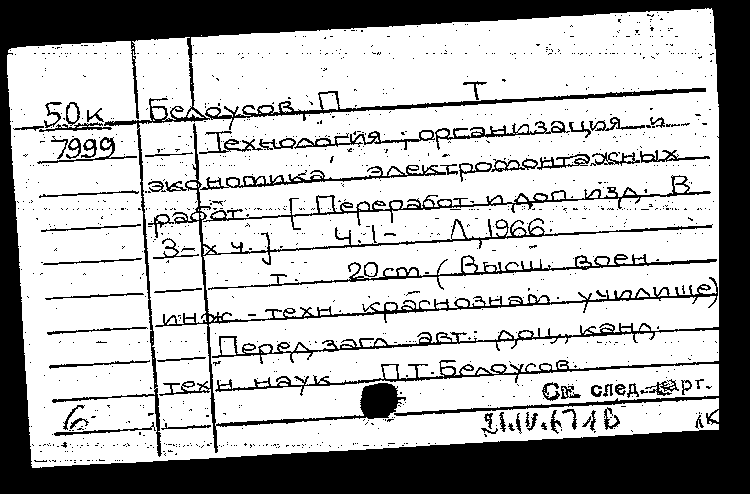 50к Белоусов, П Т
7999 Технология, организация и
экономика электромонтажных
работ. [Переработ. и доп. изд. В
3-х ч.] Ч.1- Л., 1966.
т. 20 cm. (Высш. воен.
инж.-техн. краснознам. училище)
Перед загл. авт.: доц., канд.
техн. наук П.Т. Белоусов.
См. след. карт.
6 21.IV.67 1В 1К